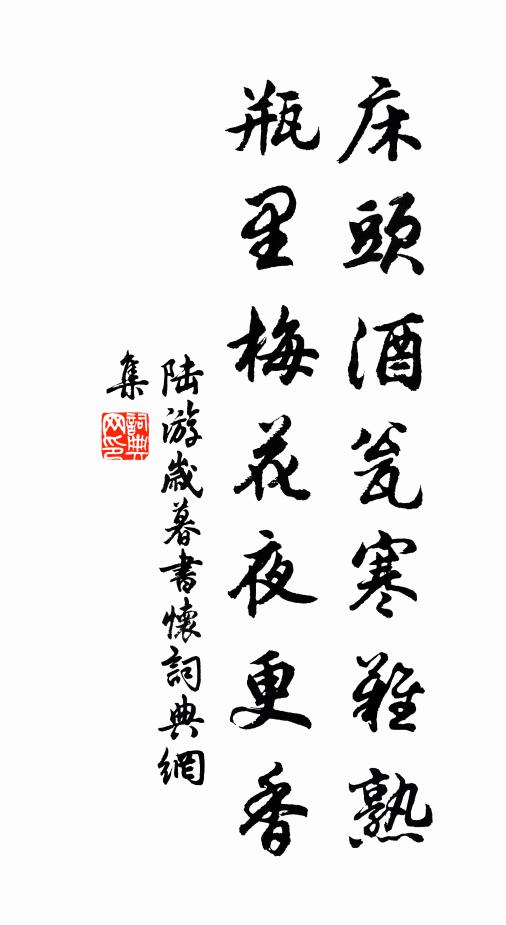 床頭酒瓮寒難熟
瓶里梅花夜更香
陆游嵗暮書懷詞典網
集
詞典
网印